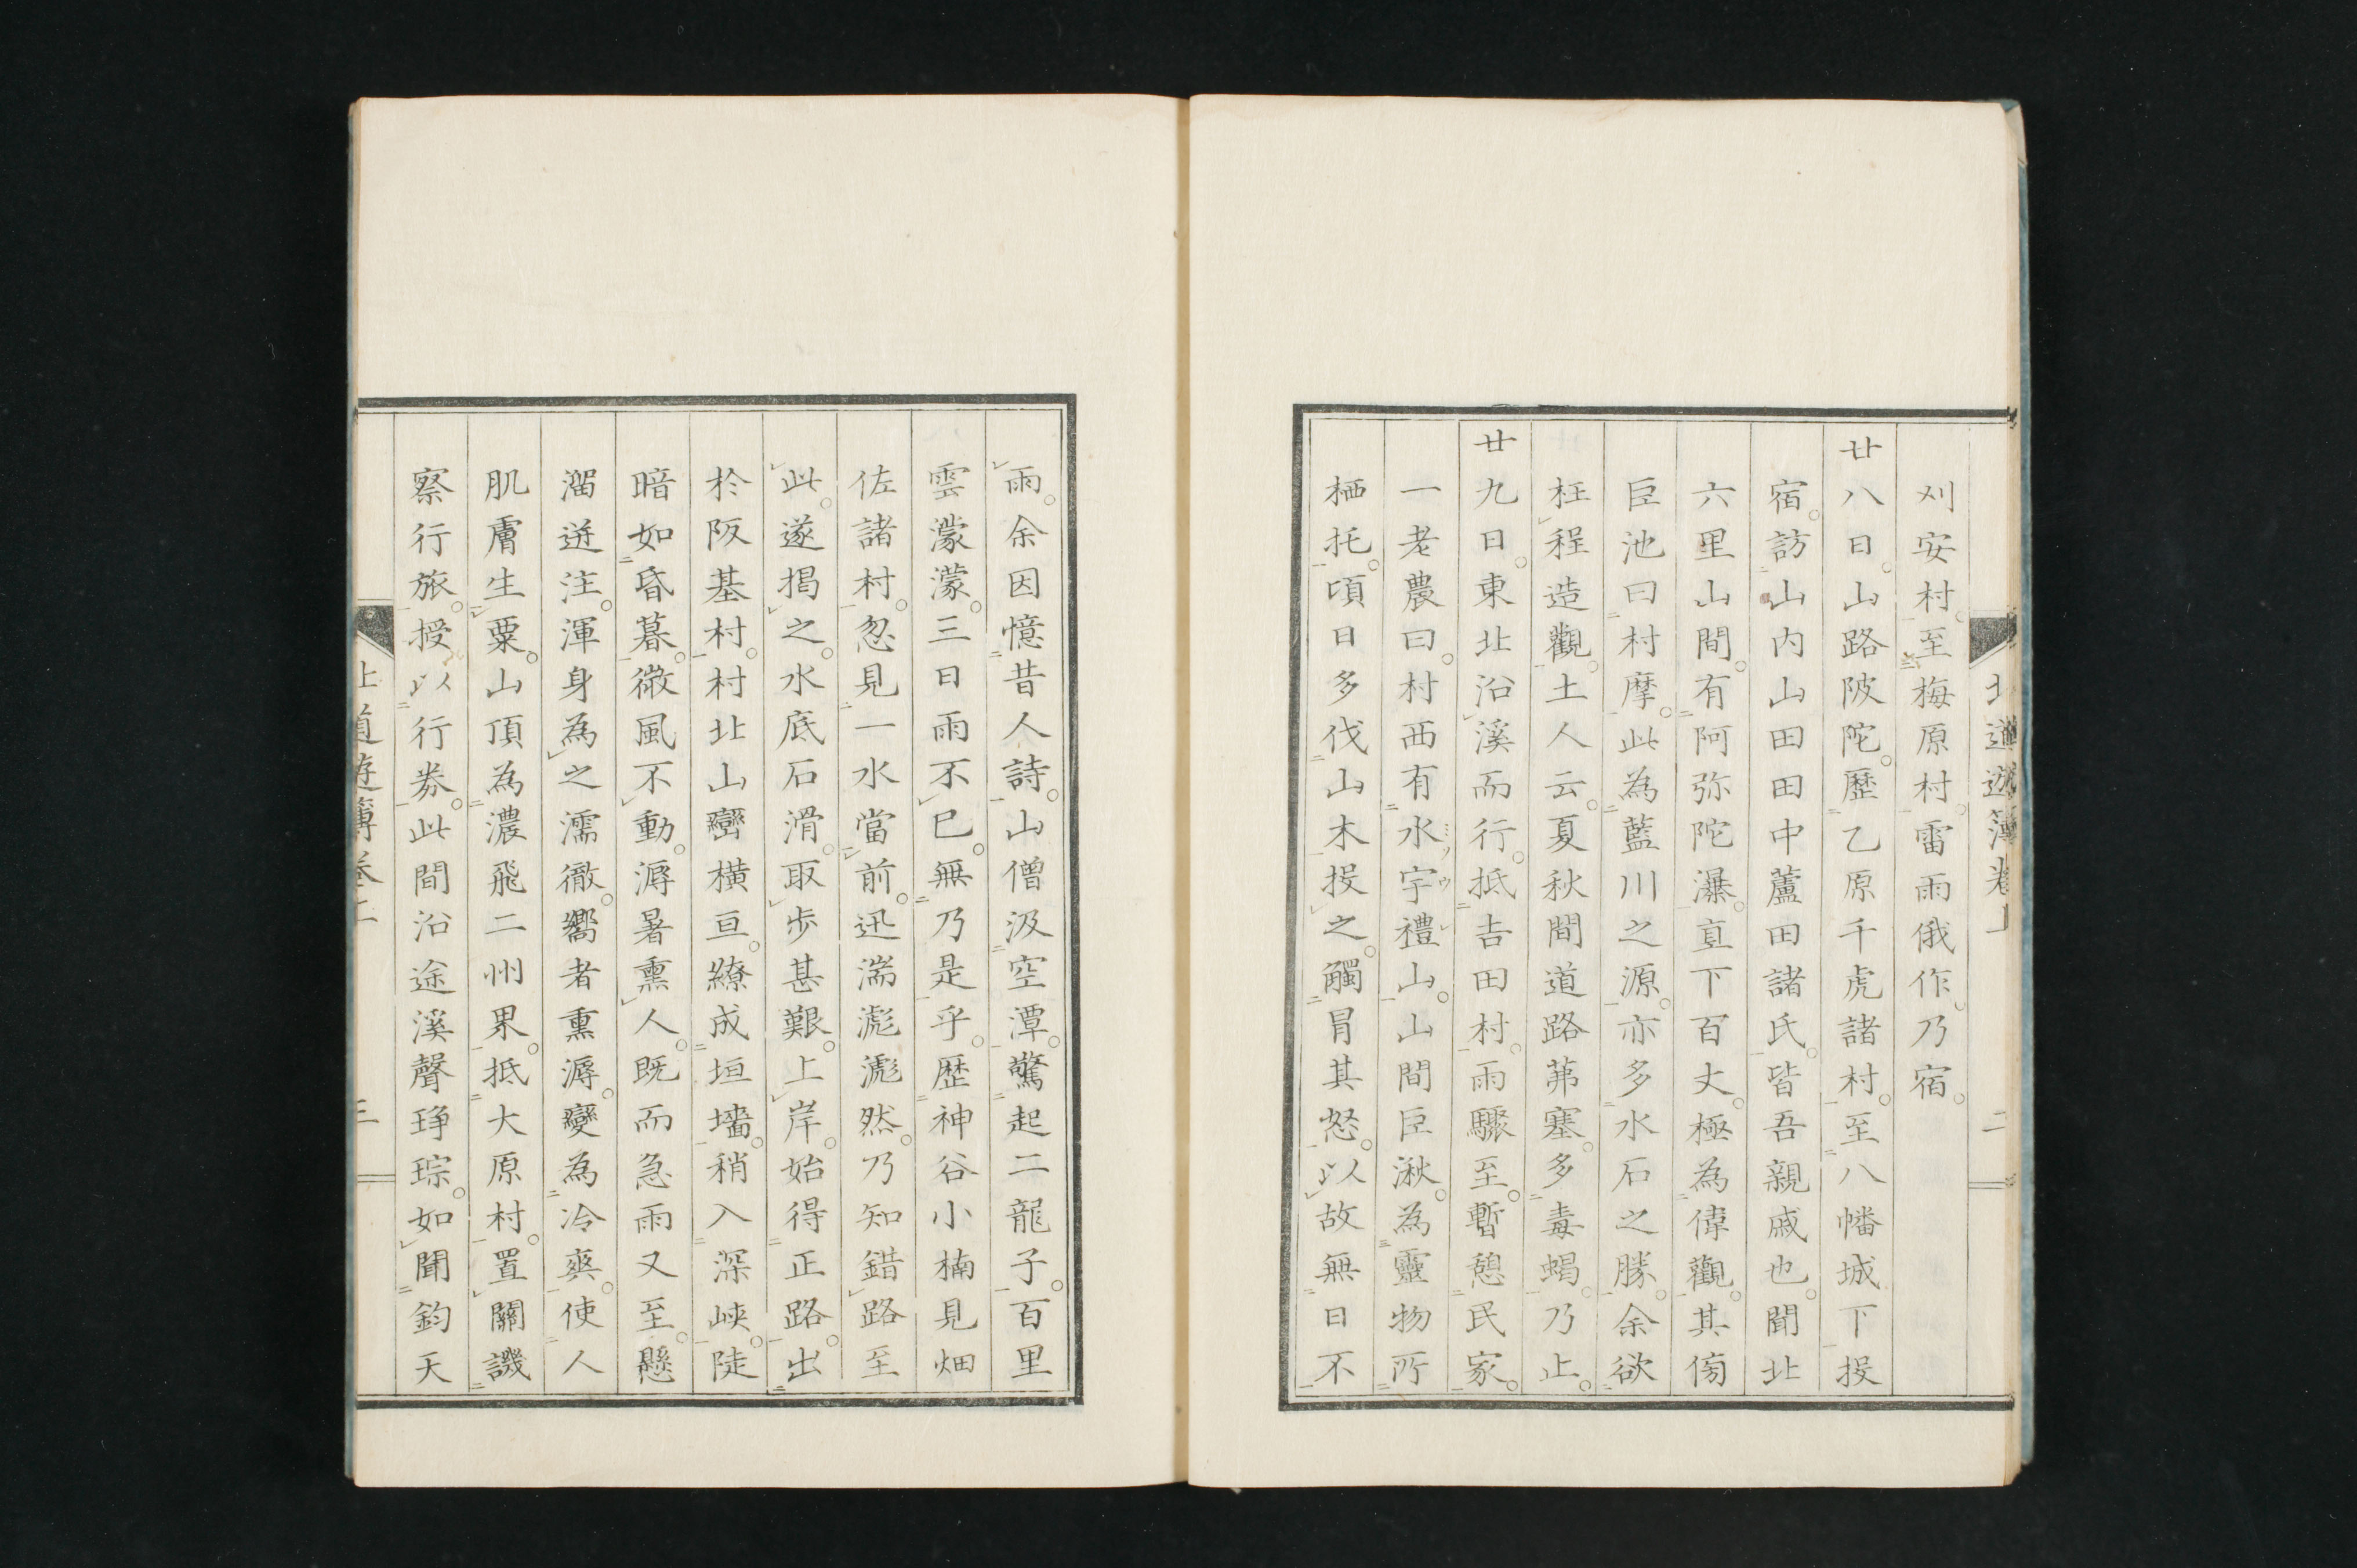 北道遊簿卷上 二
刈安村。至梅原村。雷雨俄作。乃宿。
廿八日。山路陂陀。歷乙原千虎諸村。至八幡城下投
宿。訪山内山田田中蘆田諸氏。皆吾親戚也。聞北
六里山間。有阿弥陀瀑。直下百丈。極為偉觀。其傍
巨池曰村摩。此為藍川之源。亦多水石之勝。余欲
枉程造觀。土人云。夏秋間道路茀塞。多毒蝎。乃止。
廿九日。東北沿溪而行。抵吉田村。雨驟至。暫憩民家。
一老農曰。村西有水宇禮山。山間巨湫。為靈物所
栖托。頃日多伐山木投之。觸冒其怒。以故無日不
雨。余因憶昔人詩。山僧汲空潭。驚起二龍子。百里
雲濛濛。三日雨不已。無乃是乎。歷神谷小楠見畑
佐諸村。忽見一水當前。迅湍滮滮然。乃知錯路至
此。遂揭之。水底石滑。取步甚艱。上岸。始得正路。出
於阪基村。村北山巒橫亘。繚成垣墻。稍入深峽。陡
暗如昏暮。微風不動。溽暑熏人。既而急雨又至。懸
溜迸注。渾身為之濡徹。嚮者熏溽。變為冷爽。使人
肌膚生粟。山頂為濃飛二州界。抵大原村。置關譏
察行旅。授以行券。此間沿途溪聲琤琮。如聞鈞天
北道遊簿卷上 三